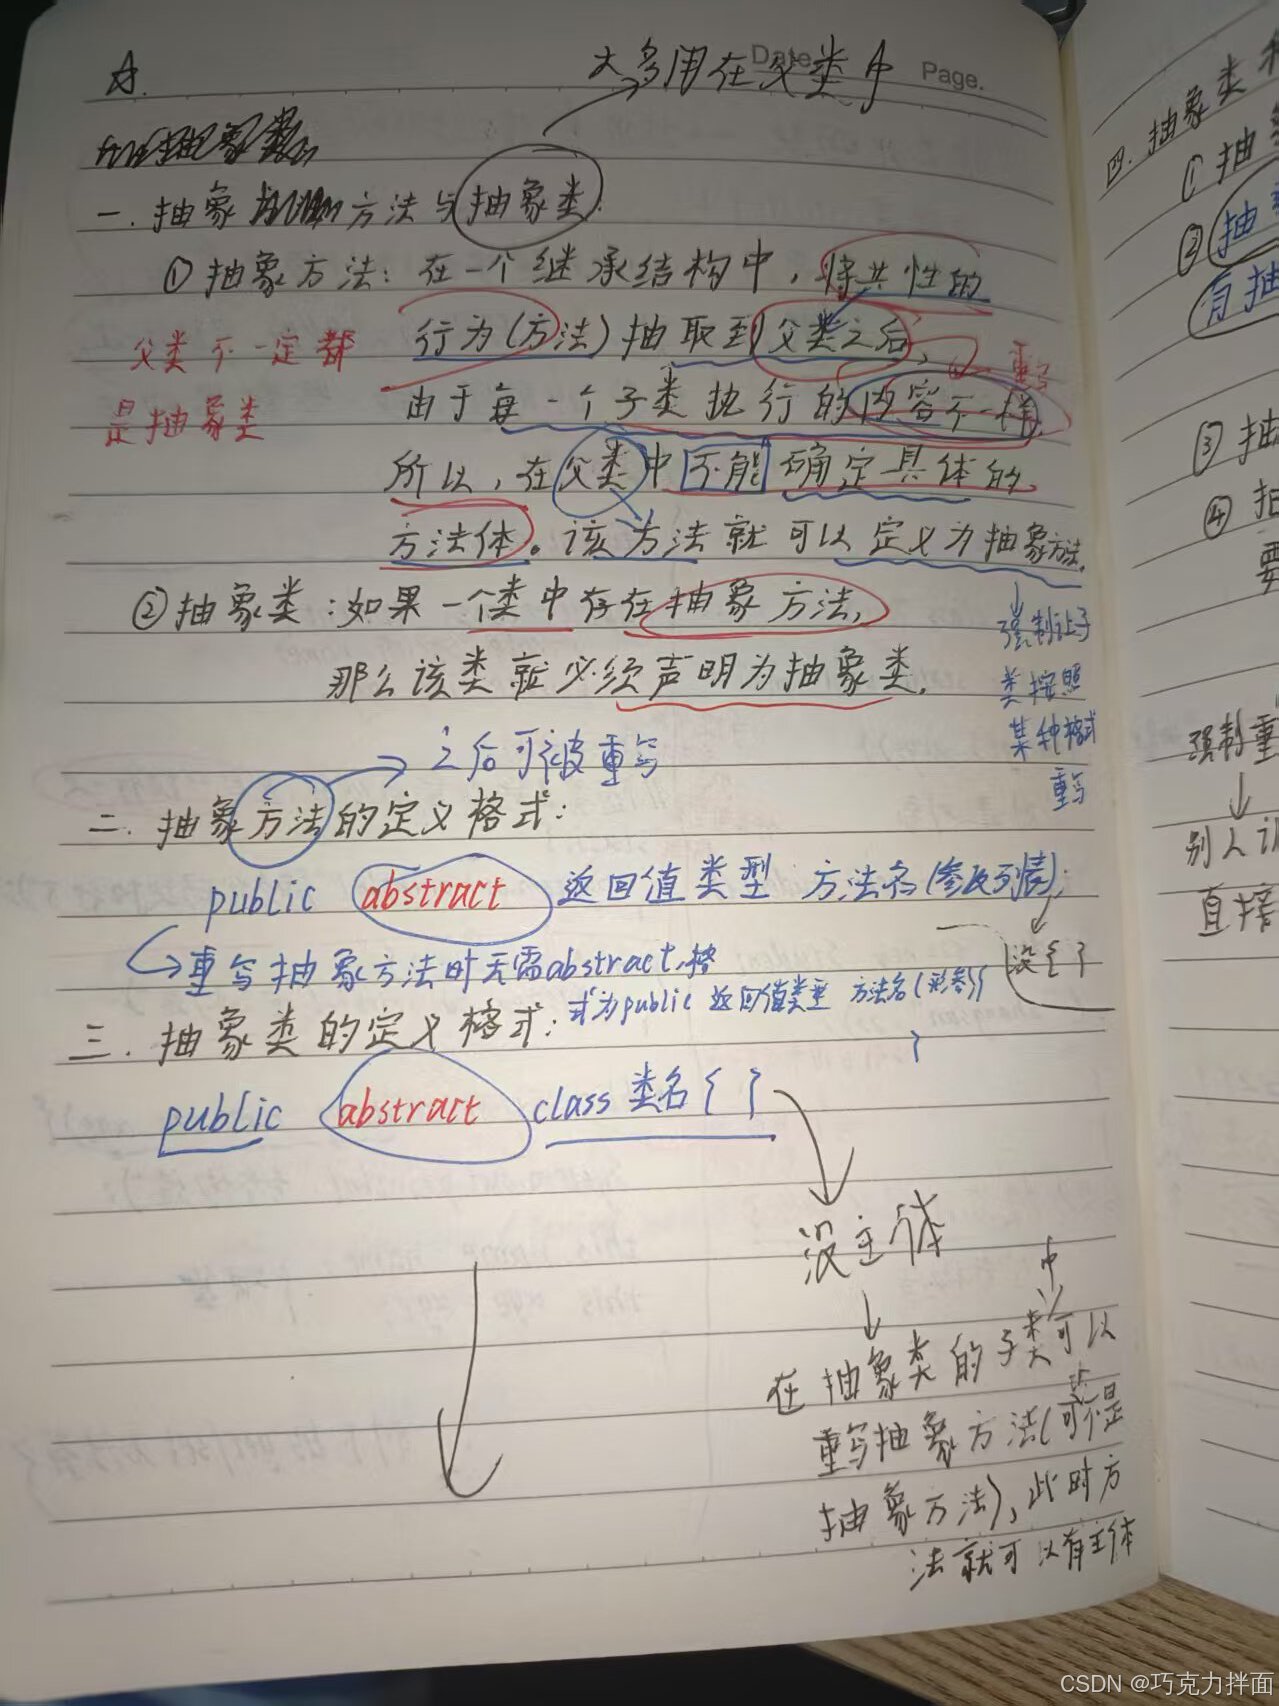 Date
Page.
大多用在父类中
一. 抽象方法与抽象类.
①抽象方法: 在一个继承结构中, 将共性的
行为(方法)抽取到父类之后,
重写
由于每一个子类执行的内容不一样,
所以, 在父类中不能确定具体的
方法体。该方法就可以定义为抽象方法.
父类不一定都
是抽象类
强制让子
类按照
某种格式
重写
②抽象类: 如果一个类中存在抽象方法,
那么该类就必须声明为抽象类.
之后可被重写
二. 抽象方法的定义格式:
public abstract 返回值类型 方法名(参数列表);
没{ }
重写抽象方法时无需abstract,格
式为public 返回值类型 方法名(形参){
}
三. 抽象类的定义格式:
public abstract class 类名{ }
没主体
中
在抽象类的子类可以
重写抽象方法(可不是
抽象方法), 此时方
法就可以有主体
四. 抽象类
① 抽
② 抽
有抽
③ 抽
④ 抽
要
强制重
别人
直接
CSDN @巧克力拌面